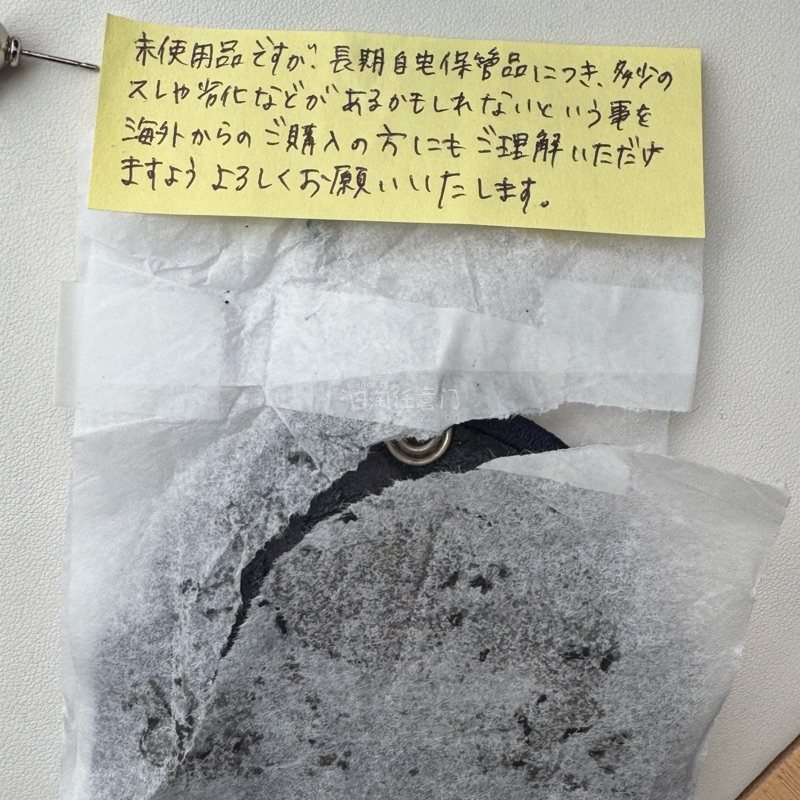 未使用品ですが、長期自宅保管品につき、多少の
スレや劣化などがあるかもしれないという事を
海外からのご購入の方にもご理解いただけ
ますようよろしくお願いいたします。